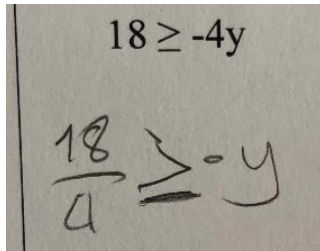 18 ≥ -4y
18/4 ≥ -y